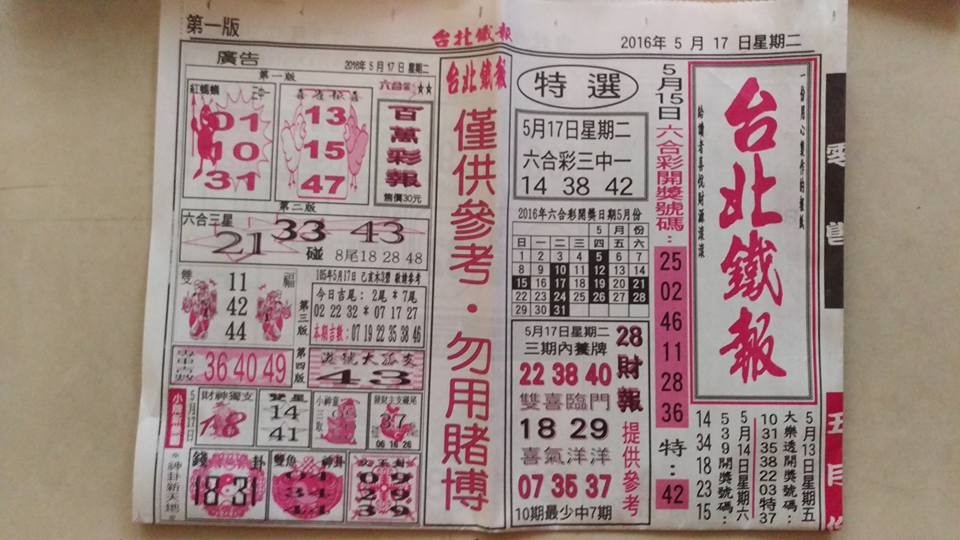 第一版
台北鐵報
2016年5月17日星期二
廣告
2016年5月17日星期二
第一版
六合彩
紅蜘蛛
三中一
01
10
31
13
15
47
百萬彩報
售價30元
第二版
六合三星
21 33 43
碰
8尾18 28 48
雙福
11
42
44
105年5月17日
今日吉尾：2尾*7尾
02 22 32*07 17 27
本期吉數：07 19 22 35 38 46
第三版
36 40 49
第四版
43
5月17日
財神獨支
雙星
14
41
37
06 16 26
神卦新天地
錢卦
18 31
雙魚神卦
04
34
44
台北鐵報
僅供參考·勿用賭博
特選
5月17日星期二
六合彩三中一
14 38 42
2016年六合彩開獎日期5月份
5月份
日一二三四五六
1 2 3 4 5 6 7
8 9 10 11 12 13 14
15 16 17 18 19 20 21
22 23 24 25 26 27 28
29 30 31
5月17日星期二
三期內養牌
22 38 40
雙喜臨門
18 29
喜氣洋洋
07 35 37
10期最少中7期
28財報
提供參考
5月15日六合彩開獎號碼：
25
02
46
11
28
36
特：
42
台北鐵報
一份用心製作的報紙
給讀者喜悅財源滾滾
5月13日星期五
大樂透開獎號碼：
10 31 35 38 22 03特37
5月14日星期六
539開獎號碼：
14 34 18 23 15
零售
五月份